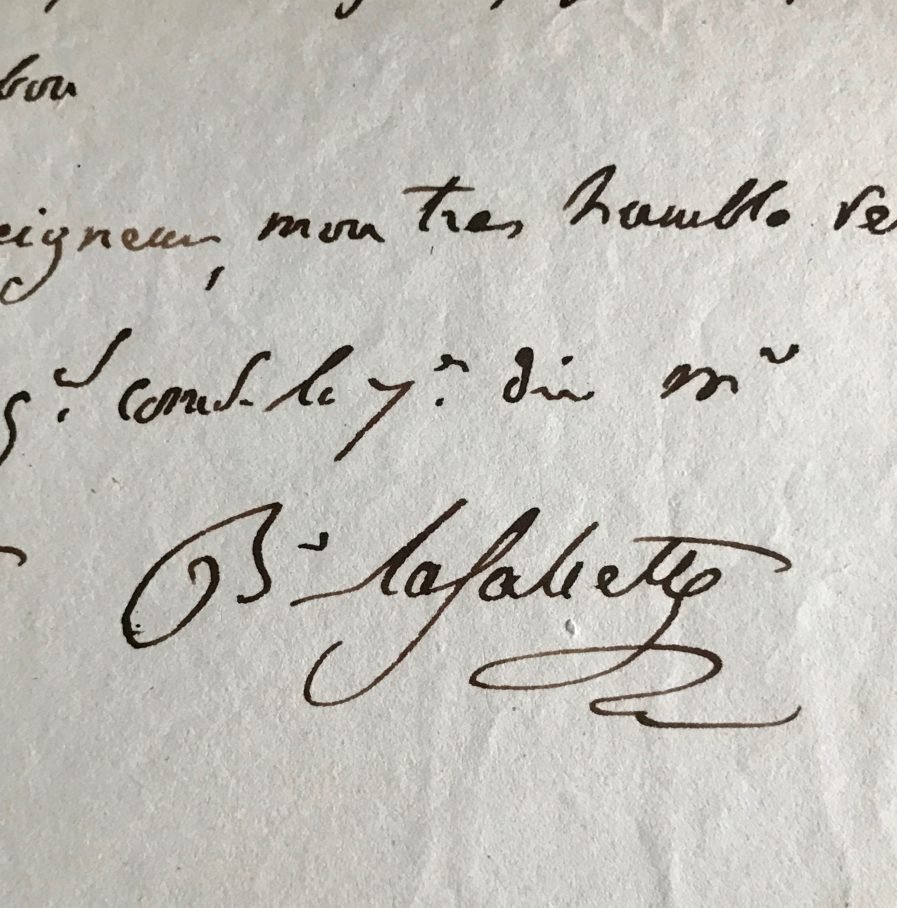 bon
eigneur, mon tres humble re
g.al comd. le 7.e div m.re
B.n lafaliette